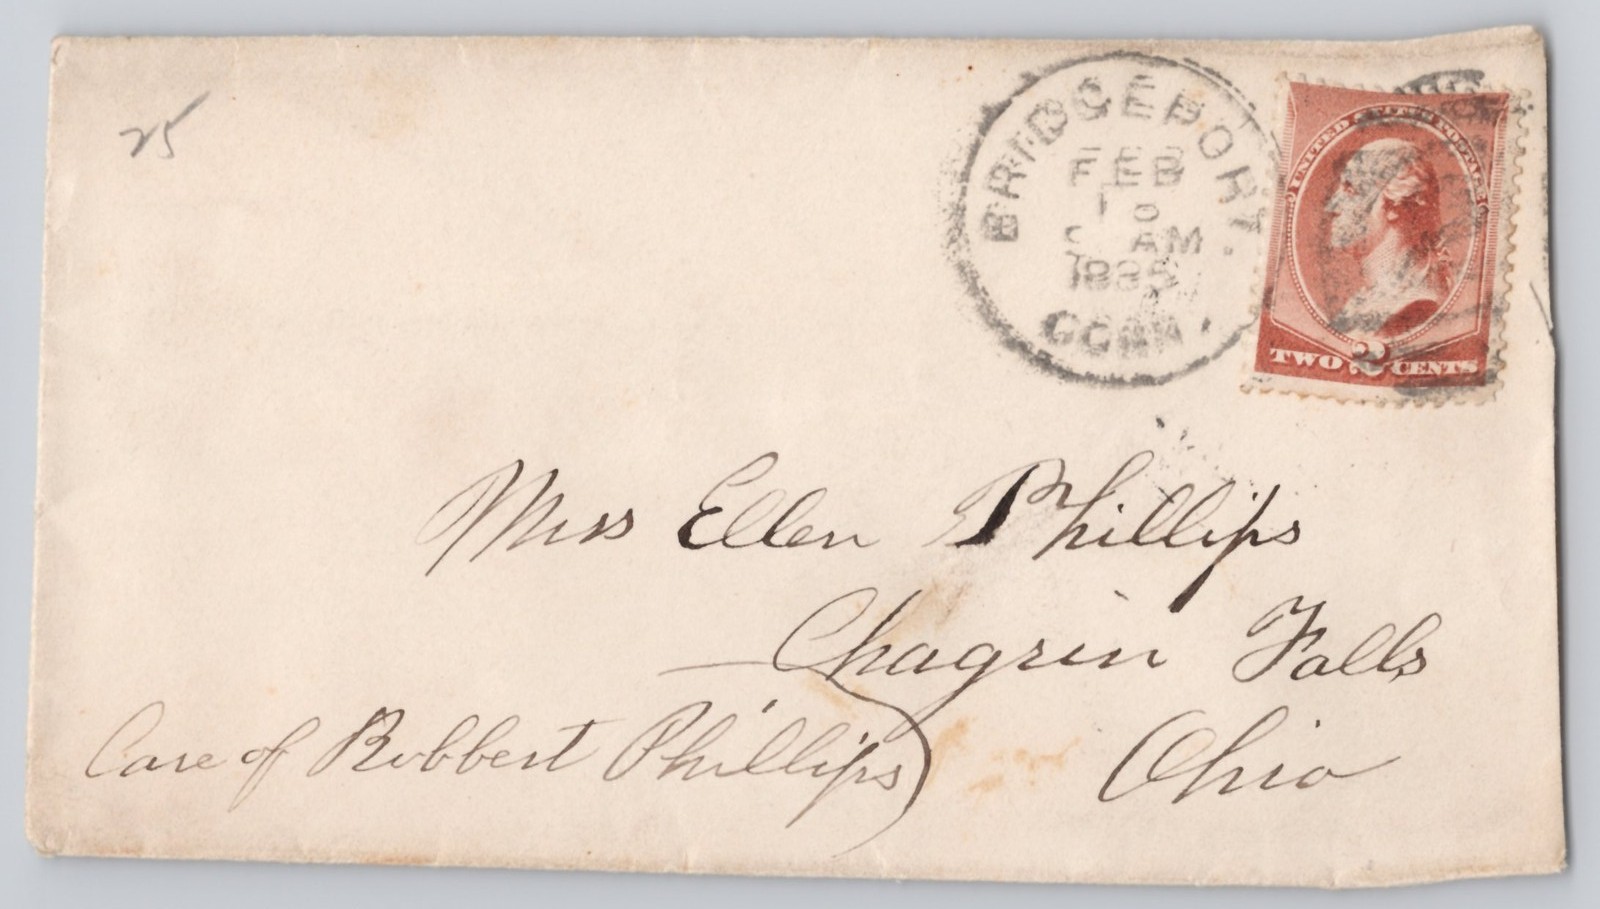 25
BRIDGEPORT.
FEB
AM
CONN.
UNITED STATES POSTAGE
TWO 2 CENTS
Miss Ellen Phillips
Chagrin Falls
Care of Robbert Phillips
Ohio